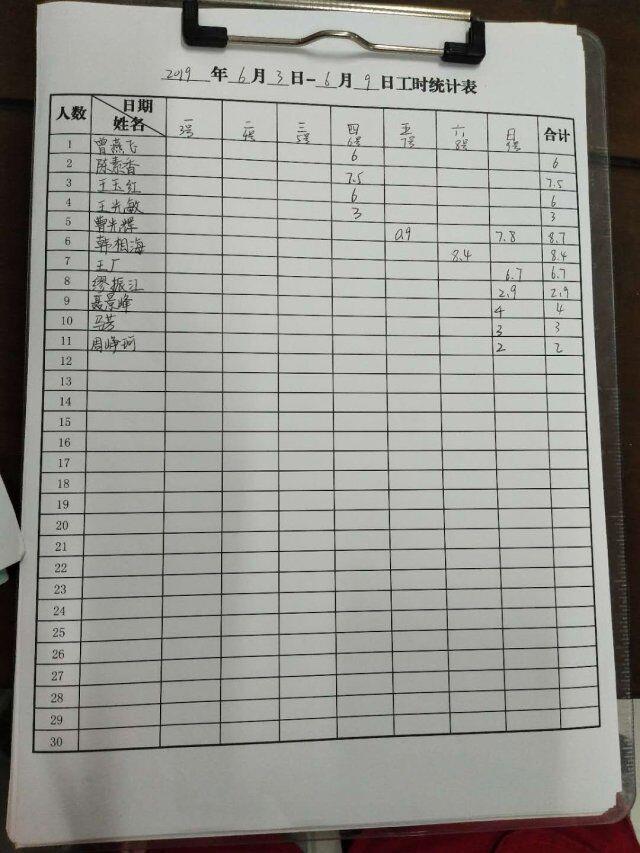 2019 年 6 月 3 日-6 月 9 日工时统计表
人数 日期 姓名 一 3号 二 4号 三 5号 四 6号 五 7号 六 8号 日 9号 合计
1 曾燕飞 6 6
2 陈素香 7.5 7.5
3 王玉红 6 6
4 王光敏 3 3
5 曹光辉 0.9 7.8 8.7
6 韩相海 8.4 8.4
7 王厂 6.7 6.7
8 缪振江 2.9 2.9
9 聂景峰 4 4
10 马芳 3 3
11 周峥珂 2 2
12
13
14
15
16
17
18
19
20
21
22
23
24
25
26
27
28
29
30